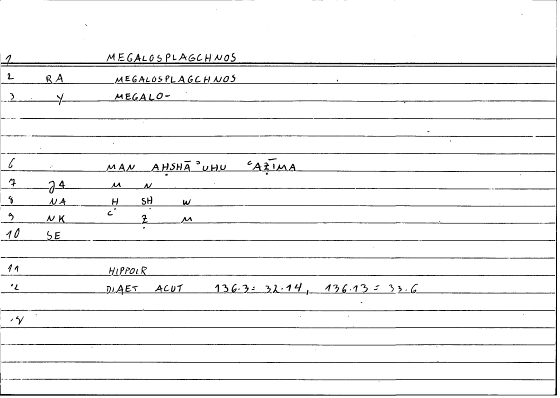 1 MEGALOSPLAGCHNOS
2 RA MEGALOSPLAGCHNOS
3 Y MEGALO-
6 MAN AḤSHĀʾUHU ʿAẒĪMA
7 J4 M N
8 NA Ḥ SH W
9 NK ʿ Ẓ M
10 SE
11 HIPPOIR
12 DIAET ACUT 136.3 = 32.14, 136.13 = 33.6